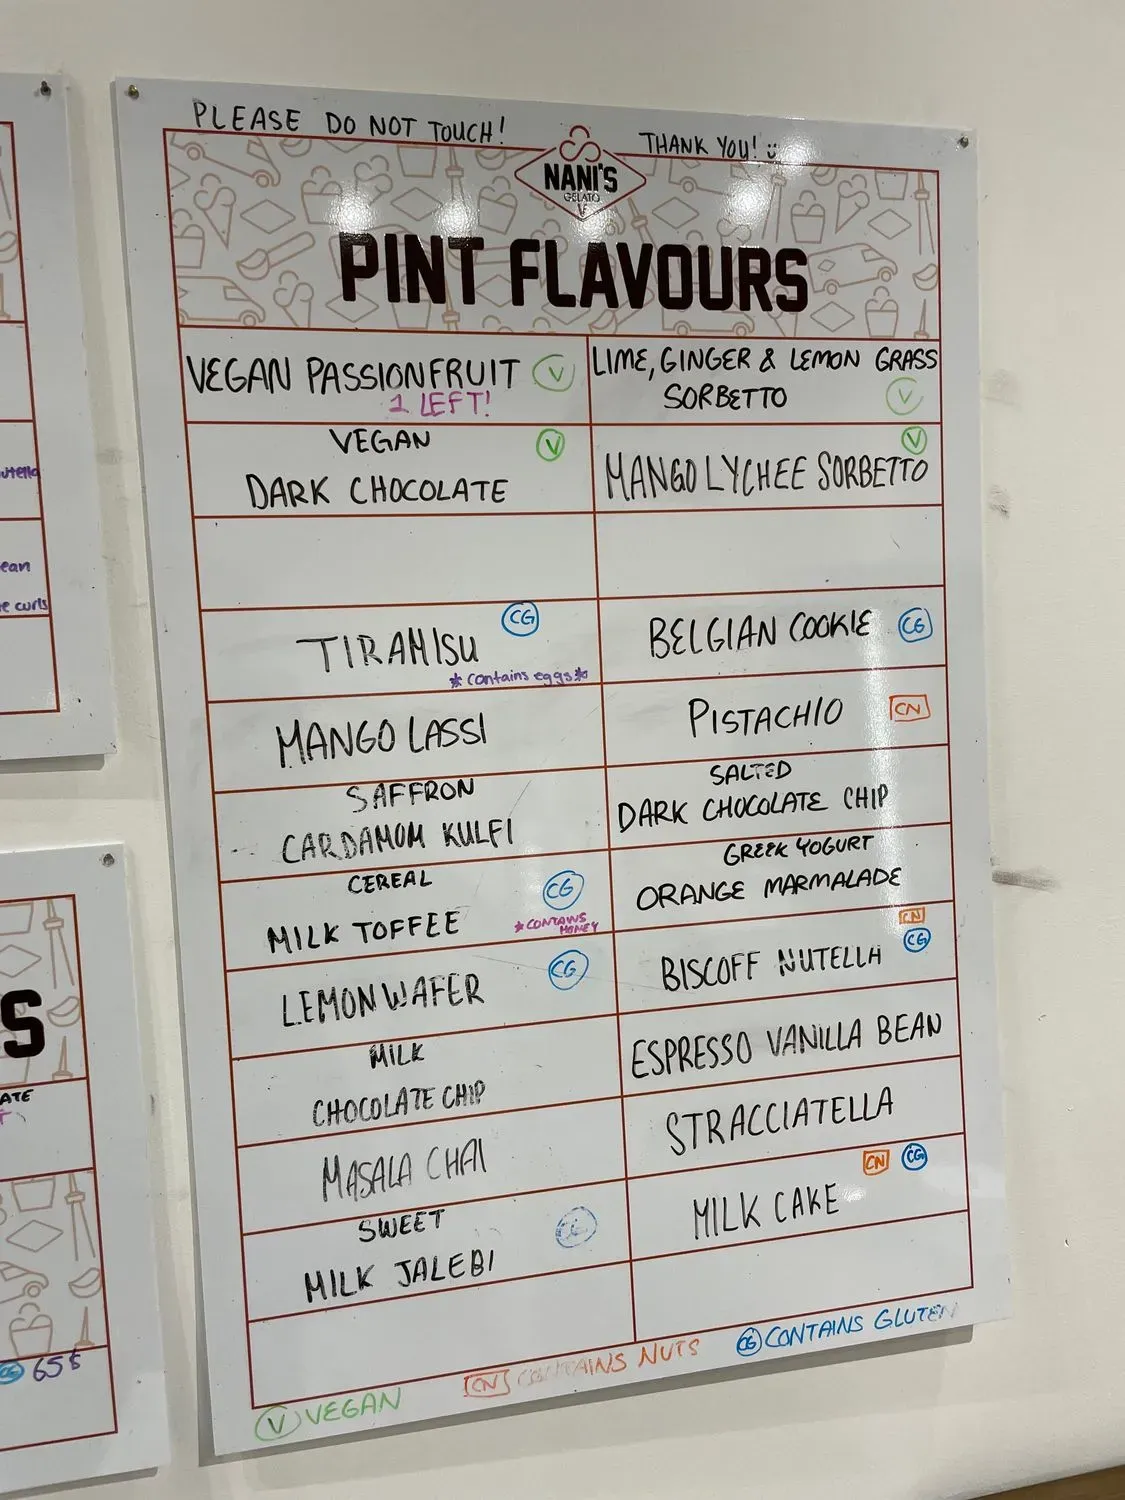 PLEASE DO NOT TOUCH!
THANK YOU!
NANI'S
GELATO
PINT FLAVOURS
VEGAN PASSIONFRUIT V
1 LEFT!
LIME, GINGER & LEMON GRASS
SORBETTO
V
VEGAN V
DARK CHOCOLATE
V
MANGO LYCHEE SORBETTO
CG
TIRAMISU
*contains eggs*
BELGIAN COOKIE CG
MANGO LASSI
PISTACHIO CN
SAFFRON
CARDAMOM KULFI
SALTED
DARK CHOCOLATE CHIP
CEREAL CG
MILK TOFFEE
*CONTAINS
HONEY
GREEK YOGURT
ORANGE MARMALADE
LEMON WAFER CG
CN
CG
BISCOFF NUTELLA
MILK
CHOCOLATE CHIP
ESPRESSO VANILLA BEAN
MASALA CHAI
STRACCIATELLA
SWEET CG
MILK JALEBI
CN CG
MILK CAKE
V VEGAN
CN CONTAINS NUTS
CG CONTAINS GLUTEN
utella
ean
e curls
S
ATE
CG 65$